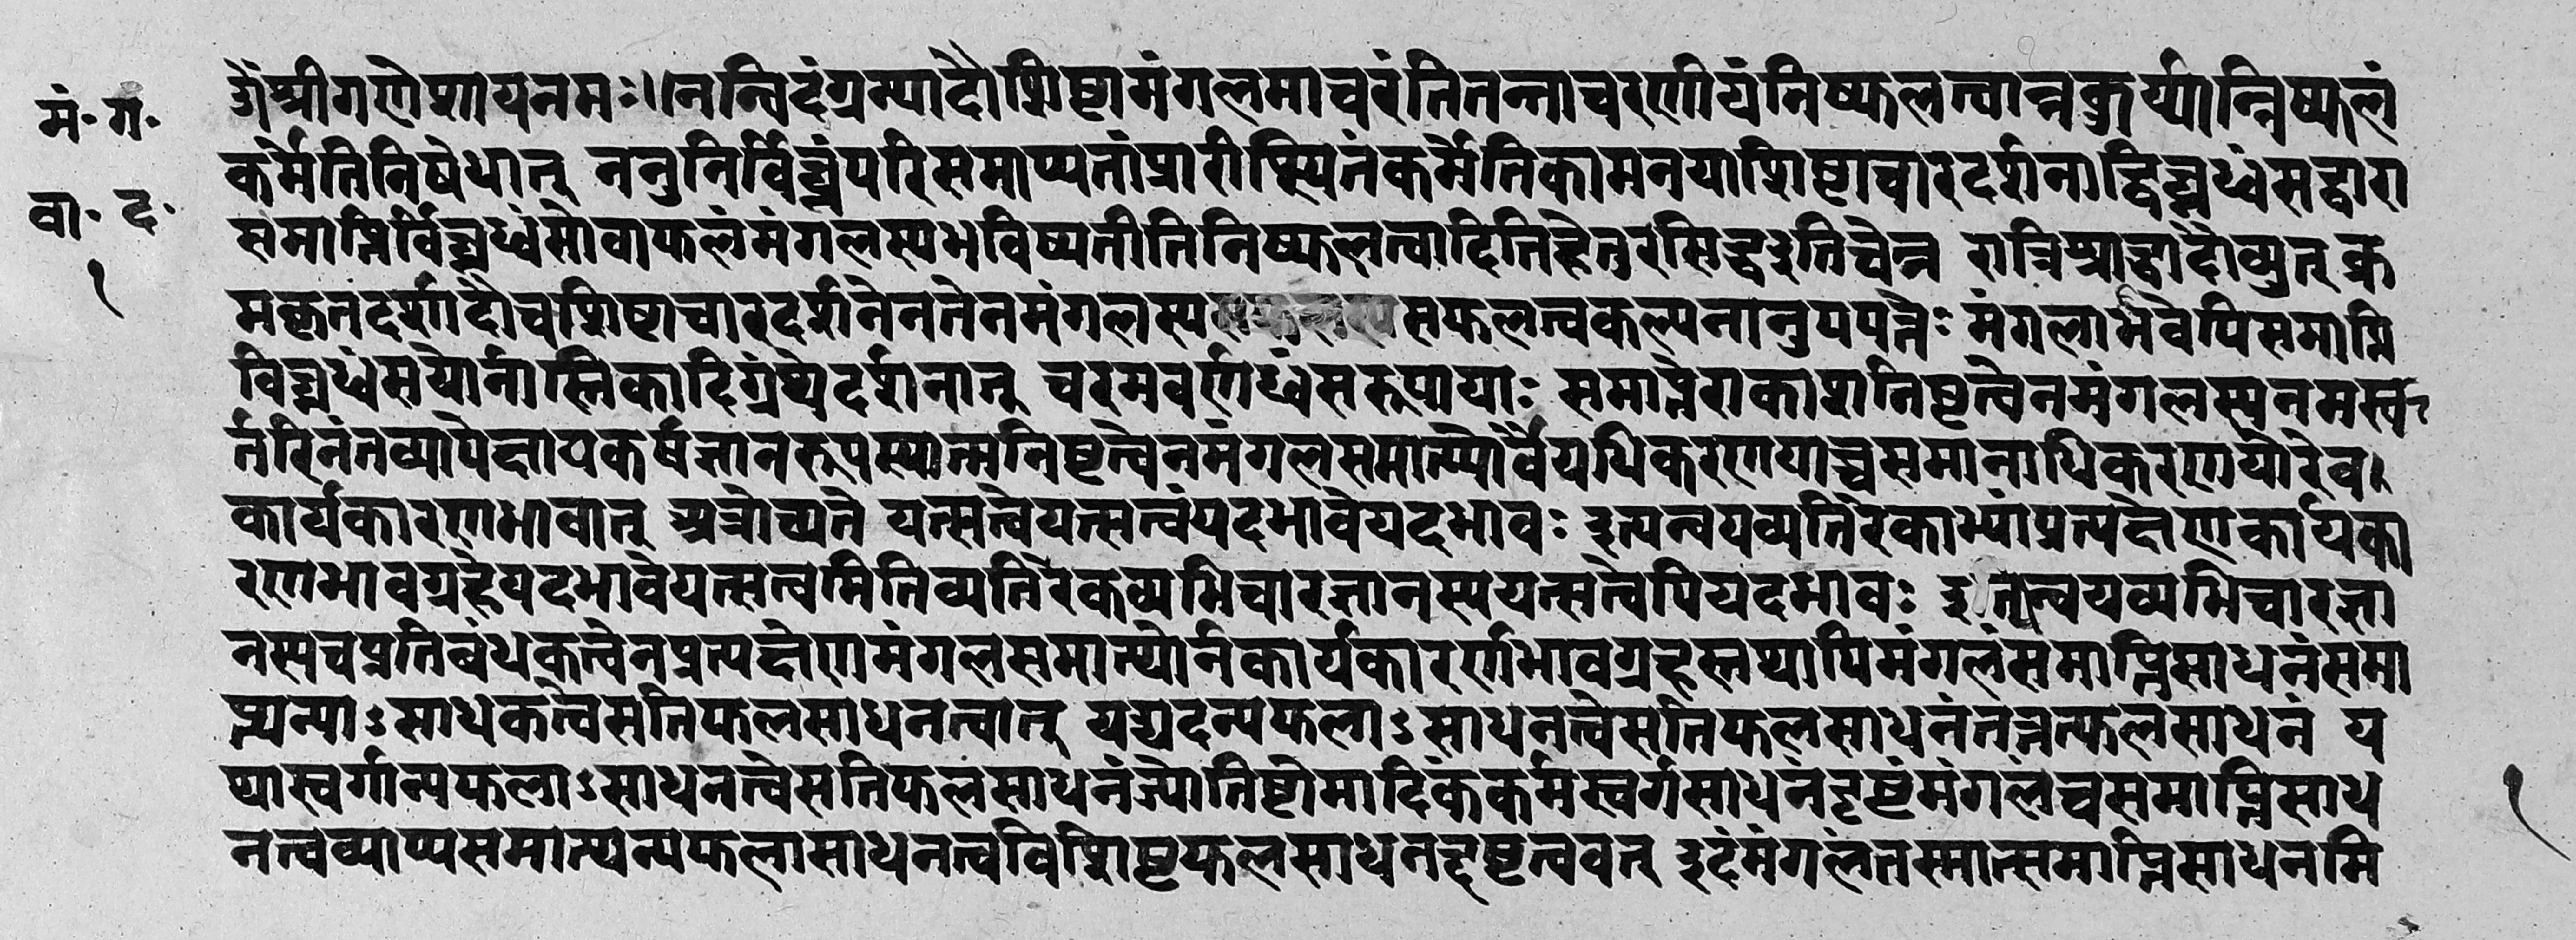 मं॰ ग॰
वा॰ द॰
१
ॐ श्रीगणेशायनमः॥ नन्विदंग्रम्थादौशिष्टामंगलमाचरंतितन्नाचरणीयंनिष्फलत्वान्नकुर्य्यान्निष्फलं
कर्मेतिनिषेधात् ननुनिर्विघ्नंपरिसमाप्यतांप्रारीप्स्यितंकर्मेतिकामनयाशिष्टाचारदर्शनाद्विघ्नध्वंसद्वारा
समाप्तिर्विघ्नध्वंसोवाफलंमंगलस्यभविष्यतीतिनिष्फलत्वादितिहेतुरसिद्धइतिचेन्न रात्रिश्राद्धादौव्युत् क्र
मकृतदर्शादौचशिष्टाचारदर्शनेनतेनमंगलस्यसफलत्वकल्पनानुपपत्तेः मंगलाभवेपिसमाप्ति
विघ्नध्वंसयोर्नास्तिकादिग्रंथेदर्शनात् चरमवर्णध्वंसरूपायाः समाप्तेराकाशनिष्टत्वेनमंगलस्यनमस्क
र्तरिनंतव्यापेक्षापकर्षज्ञानरूपस्यात्मनिष्टत्वेनमंगलसमाप्त्योर्वैयधिकरणयाच्चसमानाधिकरणयोरेव
कार्यकारणभावात् अत्रोच्यते यत्सत्वेयत्सत्वंयदभावेयदभावः इत्यन्वयव्यतिरेकाभ्यांप्रत्यक्षेणकार्यका
रणभावग्रहेयदभावेयत्सत्वमितिव्यतिरेकव्यभिचारज्ञानस्ययत्सत्वेपियदभावः इत्यन्वयव्यभिचारज्ञा
नस्यचप्रतिबंधकत्वेनप्रत्यक्षेणमंगलसमाप्त्योर्नकार्यकारणभावग्रहस्तथापिमंगलंसमाप्तिसाधनंसमा
प्त्यन्याऽसाधकत्वेसतिफलसाधनत्वात् यद्यदन्यफलाऽसाधनत्वेसतिफलसाधनंतत्तत्फलसाधनं य
थास्वर्गान्यफलाऽसाधनत्वेसतिफलसाधनंज्योतिष्टोमादिकंकर्मस्वर्गसाधनंदृष्टंमंगलंचसमाप्तिसाध
नत्वव्याप्यसमाप्त्यन्यफलासाधनत्वविशिष्टफलसाधनदृष्टत्ववत् इदंमंगलंतस्मात्समाप्तिसाधनमि
१